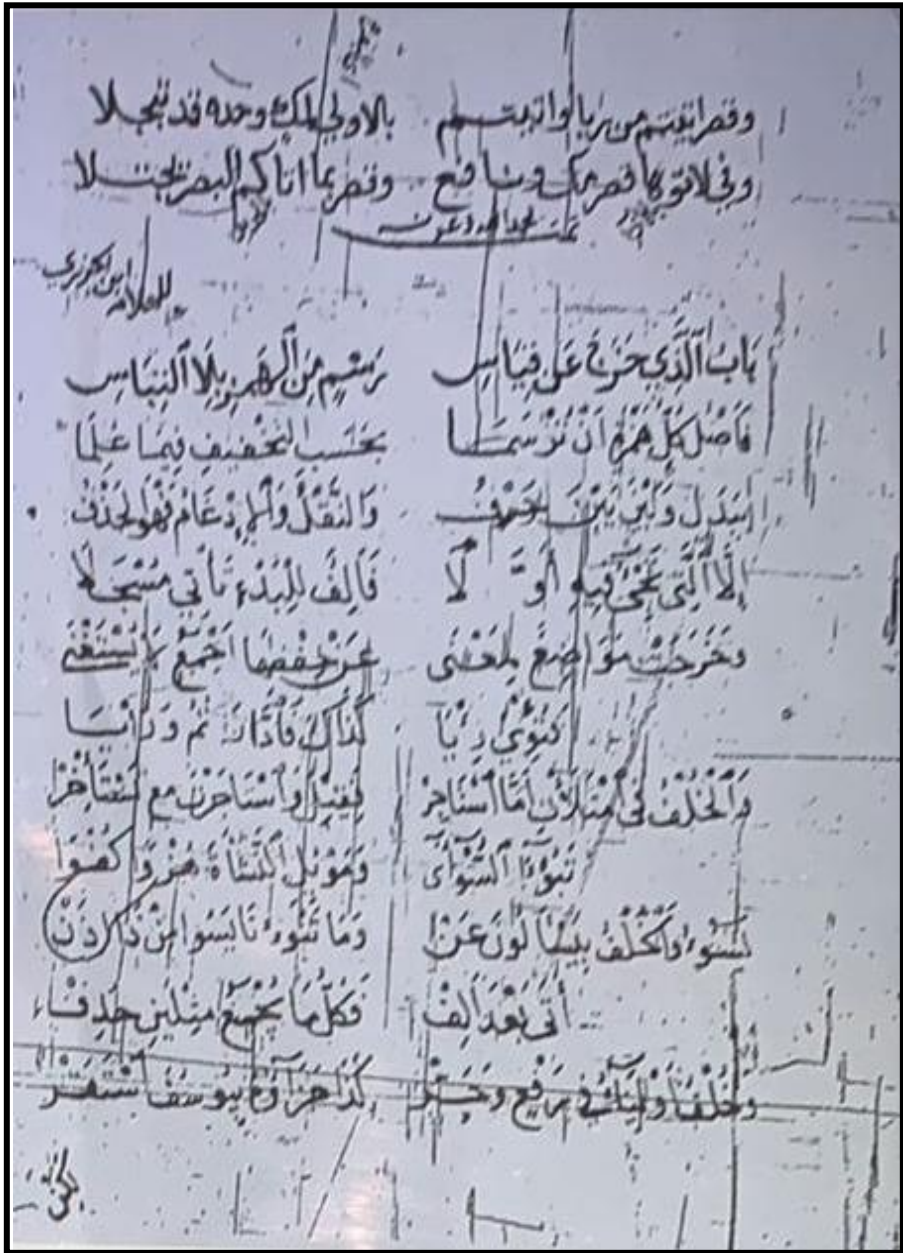 وقصر اتيتم من ربا واتيتم بالاولي لمك وحده قد تبجلا
وفي لاتوها قصر مك ونافع وقصر بما اتاكم البصر يجتلا
تمت بحمد الله وعونه
للعلامة ابن الجزري
بَابُ الَّذِي خَرَجَ عَلَى قِيَاسِ رَسْمٍ مِنَ الْهَمْزِ بِلَا الْتِبَاسِ
فَأَصْلُ كُلِّ هَمْزَةٍ أَنْ تُرْسَمَا بِحَسَبِ التَّخْفِيفِ فِيمَا عُلِمَا
بِبَدَلٍ وَبَيْنَ بَيْنَ حَرْفُ وَالنَّقْلُ وَالْإِدْغَامُ فَهْوَ الْحَذْفُ
إِلَّا الَّتِي تَجِيءُ فِيهِ أَوَّلَا فَأَلِفٌ لِلْبَدْءِ تَأْتِي مُسْجَلَا
وَخَرَجَتْ مَوَاضِعٌ لِمَعْنَى عَنْ حِفْظِهَا أَجْمَعَ لَا يُسْتَغْنَى
كَتُؤْيِ رِيَّا كَذَاكَ فَادَّارَءْتُمُ وَرُءْيَا
وَالْخُلْفُ فِي امْتَلَأْنِ أَمَّا اسْتَأْجِرْ فَقِيلَ وَاسْتَأْجَرْتَ مَعْ تَسْتَأْخِرْ
تَبُوءَا السُّوأَى وَمَوْئِلَ النَّشْأَةَ هُزْوًا كُفُوًا
تَسُوءُ وَالْخُلْفُ بِيَسْأَلُونَ عَنْ وَمَا تَنُوءُ
أَتَى بَعْدَ أَلِفْ فَكُلُّ مَا يُجْمَعُ مِثْلَيْنِ حُذِفْ
وَخُلْفُ أَوْلِيَاءُ فِي رَفْعٍ وَجَرْ كَذَا جَزَاؤُهُ بِيُوسُفَ اسْتَقَرْ